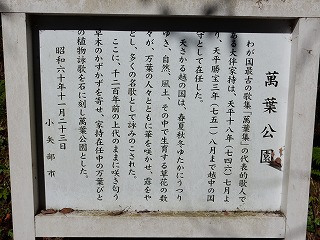 萬葉公園
わが国最古の歌集「萬葉集」の代表的歌人で
ある大伴家持は、天平十八年(七四六)七月よ
り、天平勝宝三年(七五一)八月まで越中の国
守として在任した。
天さかる越の国は、春夏秋冬ゆたかにうつり
ゆき、自然、風土、その中で生育する草花の数
々が、万葉の人々とともに華を咲かせ、露をや
どし、多くの名歌として詠みのこされた。
ここに、千二百年前の上代のままに咲き匂う
草木のかずかずを寄せ、家持在任中の万葉びと
の植物詠歌を石に刻し萬葉公園とした。
昭和六十年十一月二十三日
小矢部市